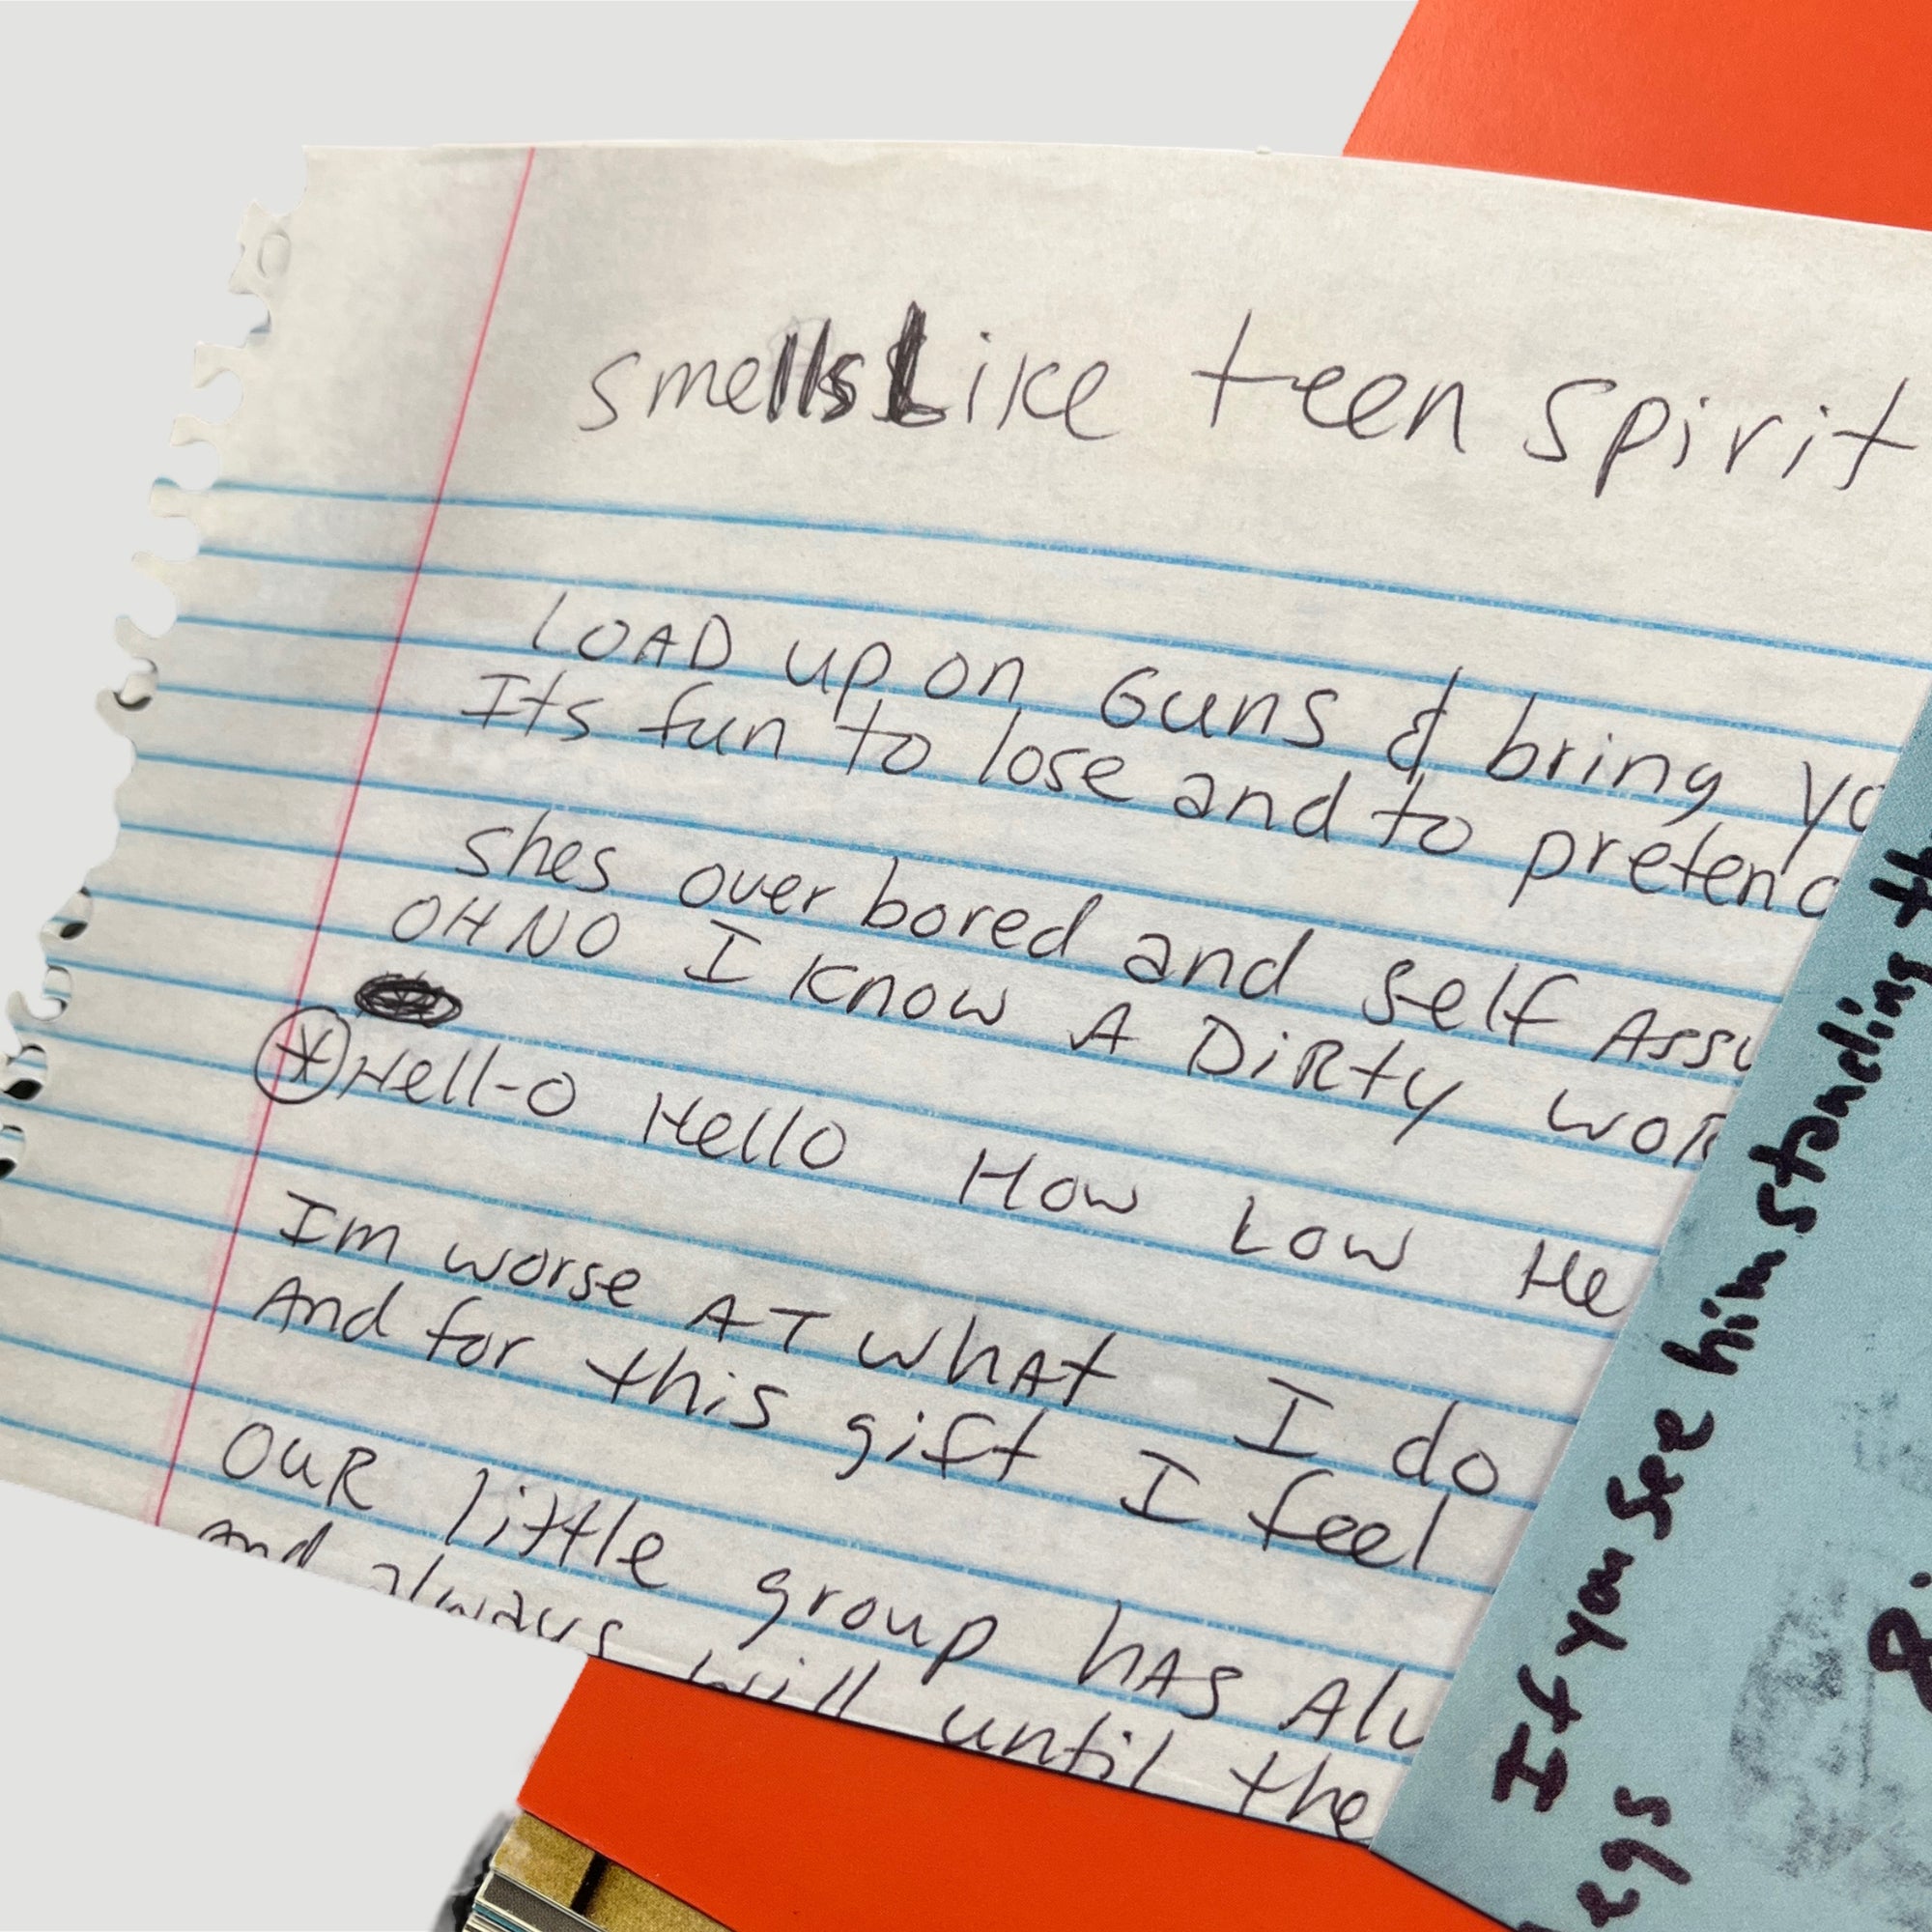 smells Like teen spirit
LOAD up on Guns & bring yo
Its fun to lose and to pretend
shes over bored and self Assu
OH NO I know A DiRty woR
* Hell-o Hello How Low He
Im worse AT whAt I do
And for this gift I feel
OuR little group hAs Alw
And always will until the
If you see him standing th
egs